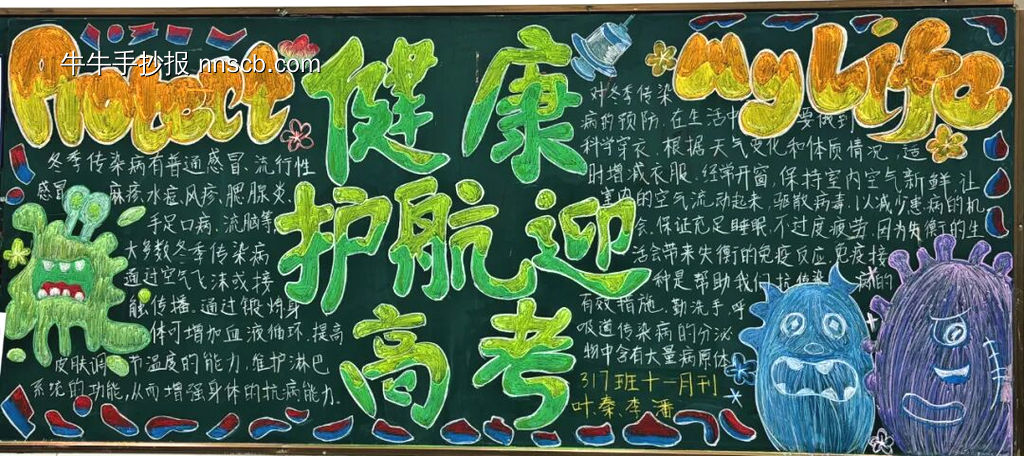 Protect
牛牛手抄报 nnscb.com
健康
护航迎
高考
My Life
冬季传染病有普通感冒、流行性
感冒、麻疹、水痘、风疹、腮腺炎、
手足口病、流脑等
大多数冬季传染病
通过空气飞沫或接
触传播。通过锻炼身
体可增加血液循环,提高
皮肤调节温度的能力,维护淋巴
系统的功能,从而增强身体的抗病能力.
对冬季传染
病的预防,在生活中 要做到
科学穿衣、根据天气变化和体质情况,适
时增减衣服、经常开窗,保持室内空气新鲜,让
室内的空气流动起来,驱散病毒,以减少患病的机
会、保证充足睡眠,不过度疲劳,因为失衡的生
活会带来失衡的免疫反应,免疫接
种是帮助我们抗传染 病的
有效措施,勤洗手,呼
吸道传染病的分泌
物中含有大量病原体
317班十一月刊
叶.秦.李.潘